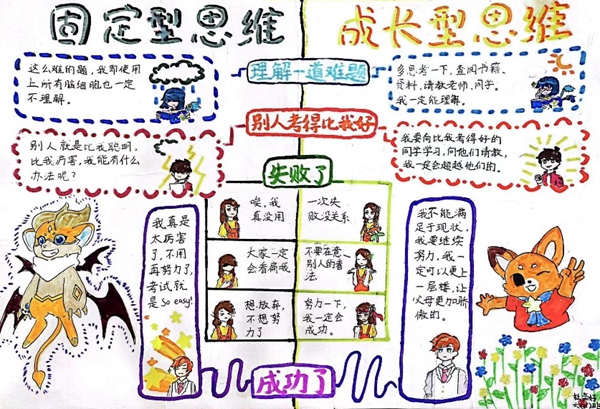 固定型思维
成长型思维
理解一道难题
这么难的题,我即使用
上所有脑细胞也一定
不理解。
多思考一下,查阅书籍、
资料,请教老师、同学。
我一定能理解。
别人考得比我好
别人就是比我聪明,
比我厉害,我能有什么
办法呢?
我要向比我考得好的
同学学习,向他们请教,
我一定会超越他们的。
失败了
唉,我
真没用
一次失
败没关系
大家一定
会看扁我
不要在意
别人的看
法
想放弃,
不想努
力了
努力一下,
我一定会
成功。
成功了
我真是
太厉害
了,不用
再努力了,
考试就
是 So easy!
我不能满
足于现状,
我要继续
努力,我一
定可以更上
一层楼,让
父母更加骄
傲的。